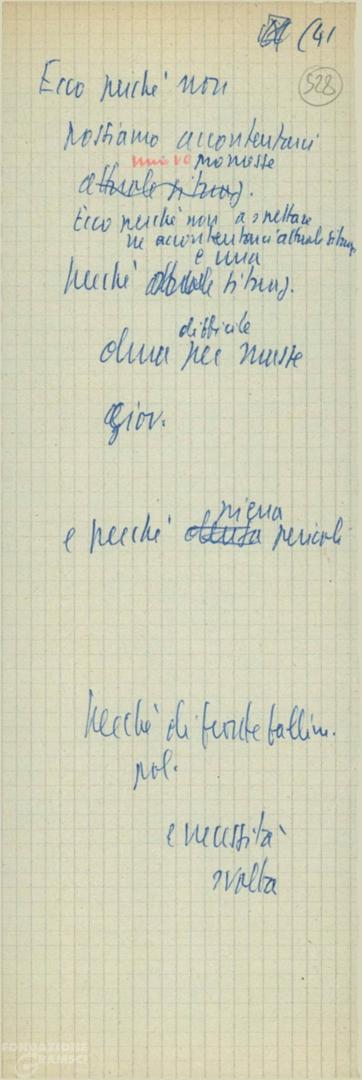 (41
528
Ecco perché non
possiamo accontentarci
nuove promesse
attuale situaz.
Ecco perché non aspettare
né accontentarci attuale situaz.
è una
perché attuale situaz.
difficile
dura per masse
giov.
piena
e perché pericoli
perché di fronte fallim.
pol.
e necessità
svolta
FONDAZIONE
GRAMSCI